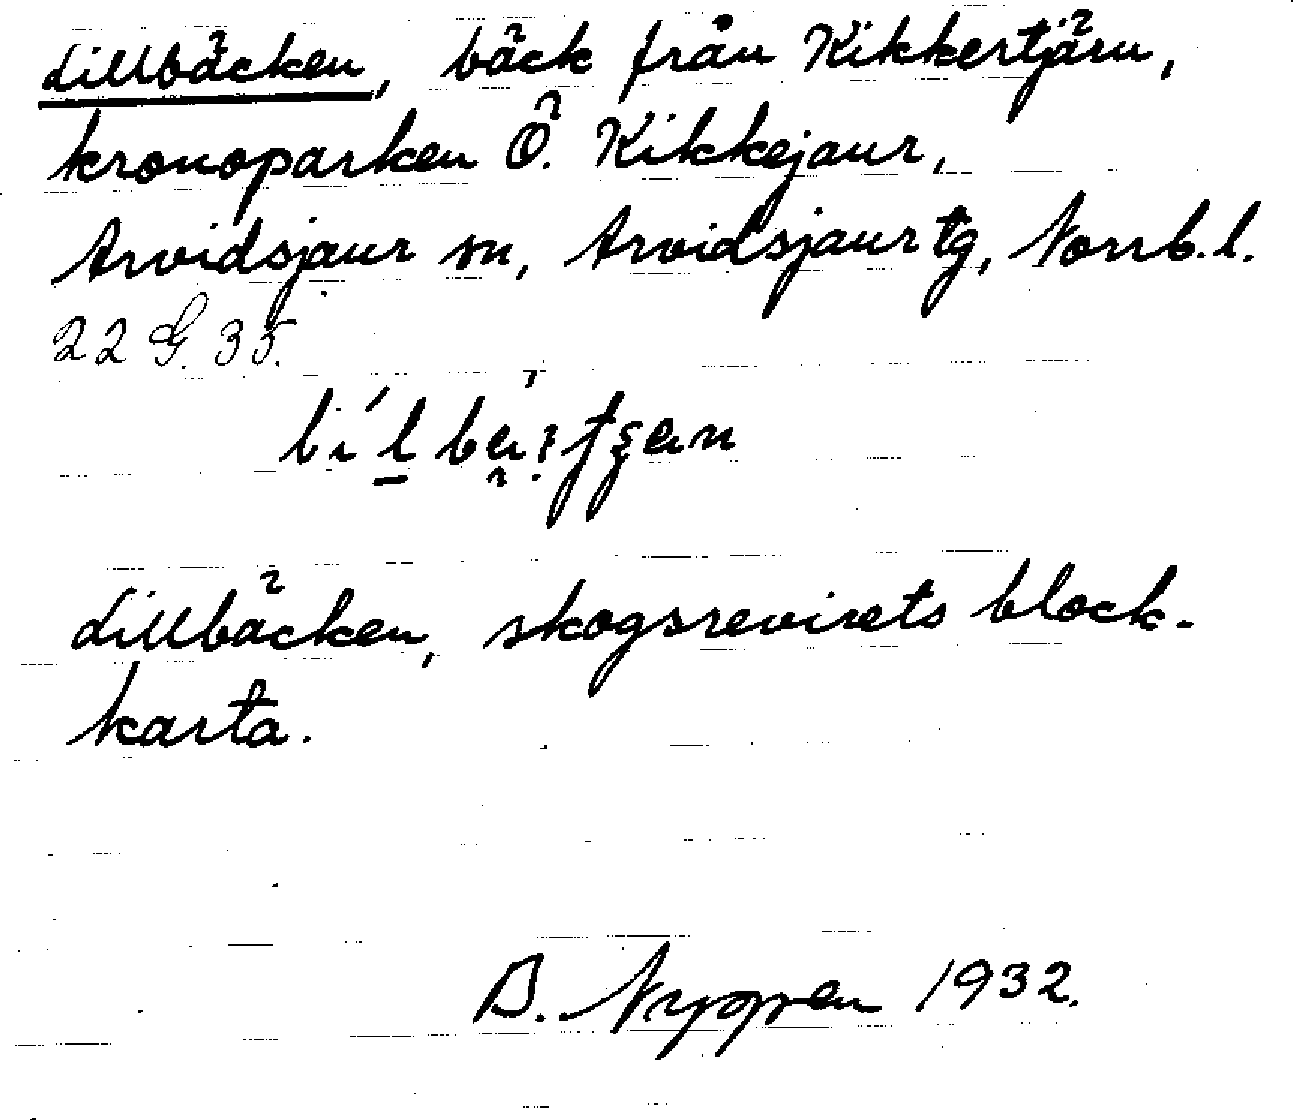 Lillbäcken, bäck från Kikkertjärn,
kronoparken Ö. Kikkejaur,
Arvidsjaur sn, Arvidsjaur tg, Norrb. l.
22 G. 35.
Lillbäcken, skogsrevirets block-
karta.
B. Nygren 1932.